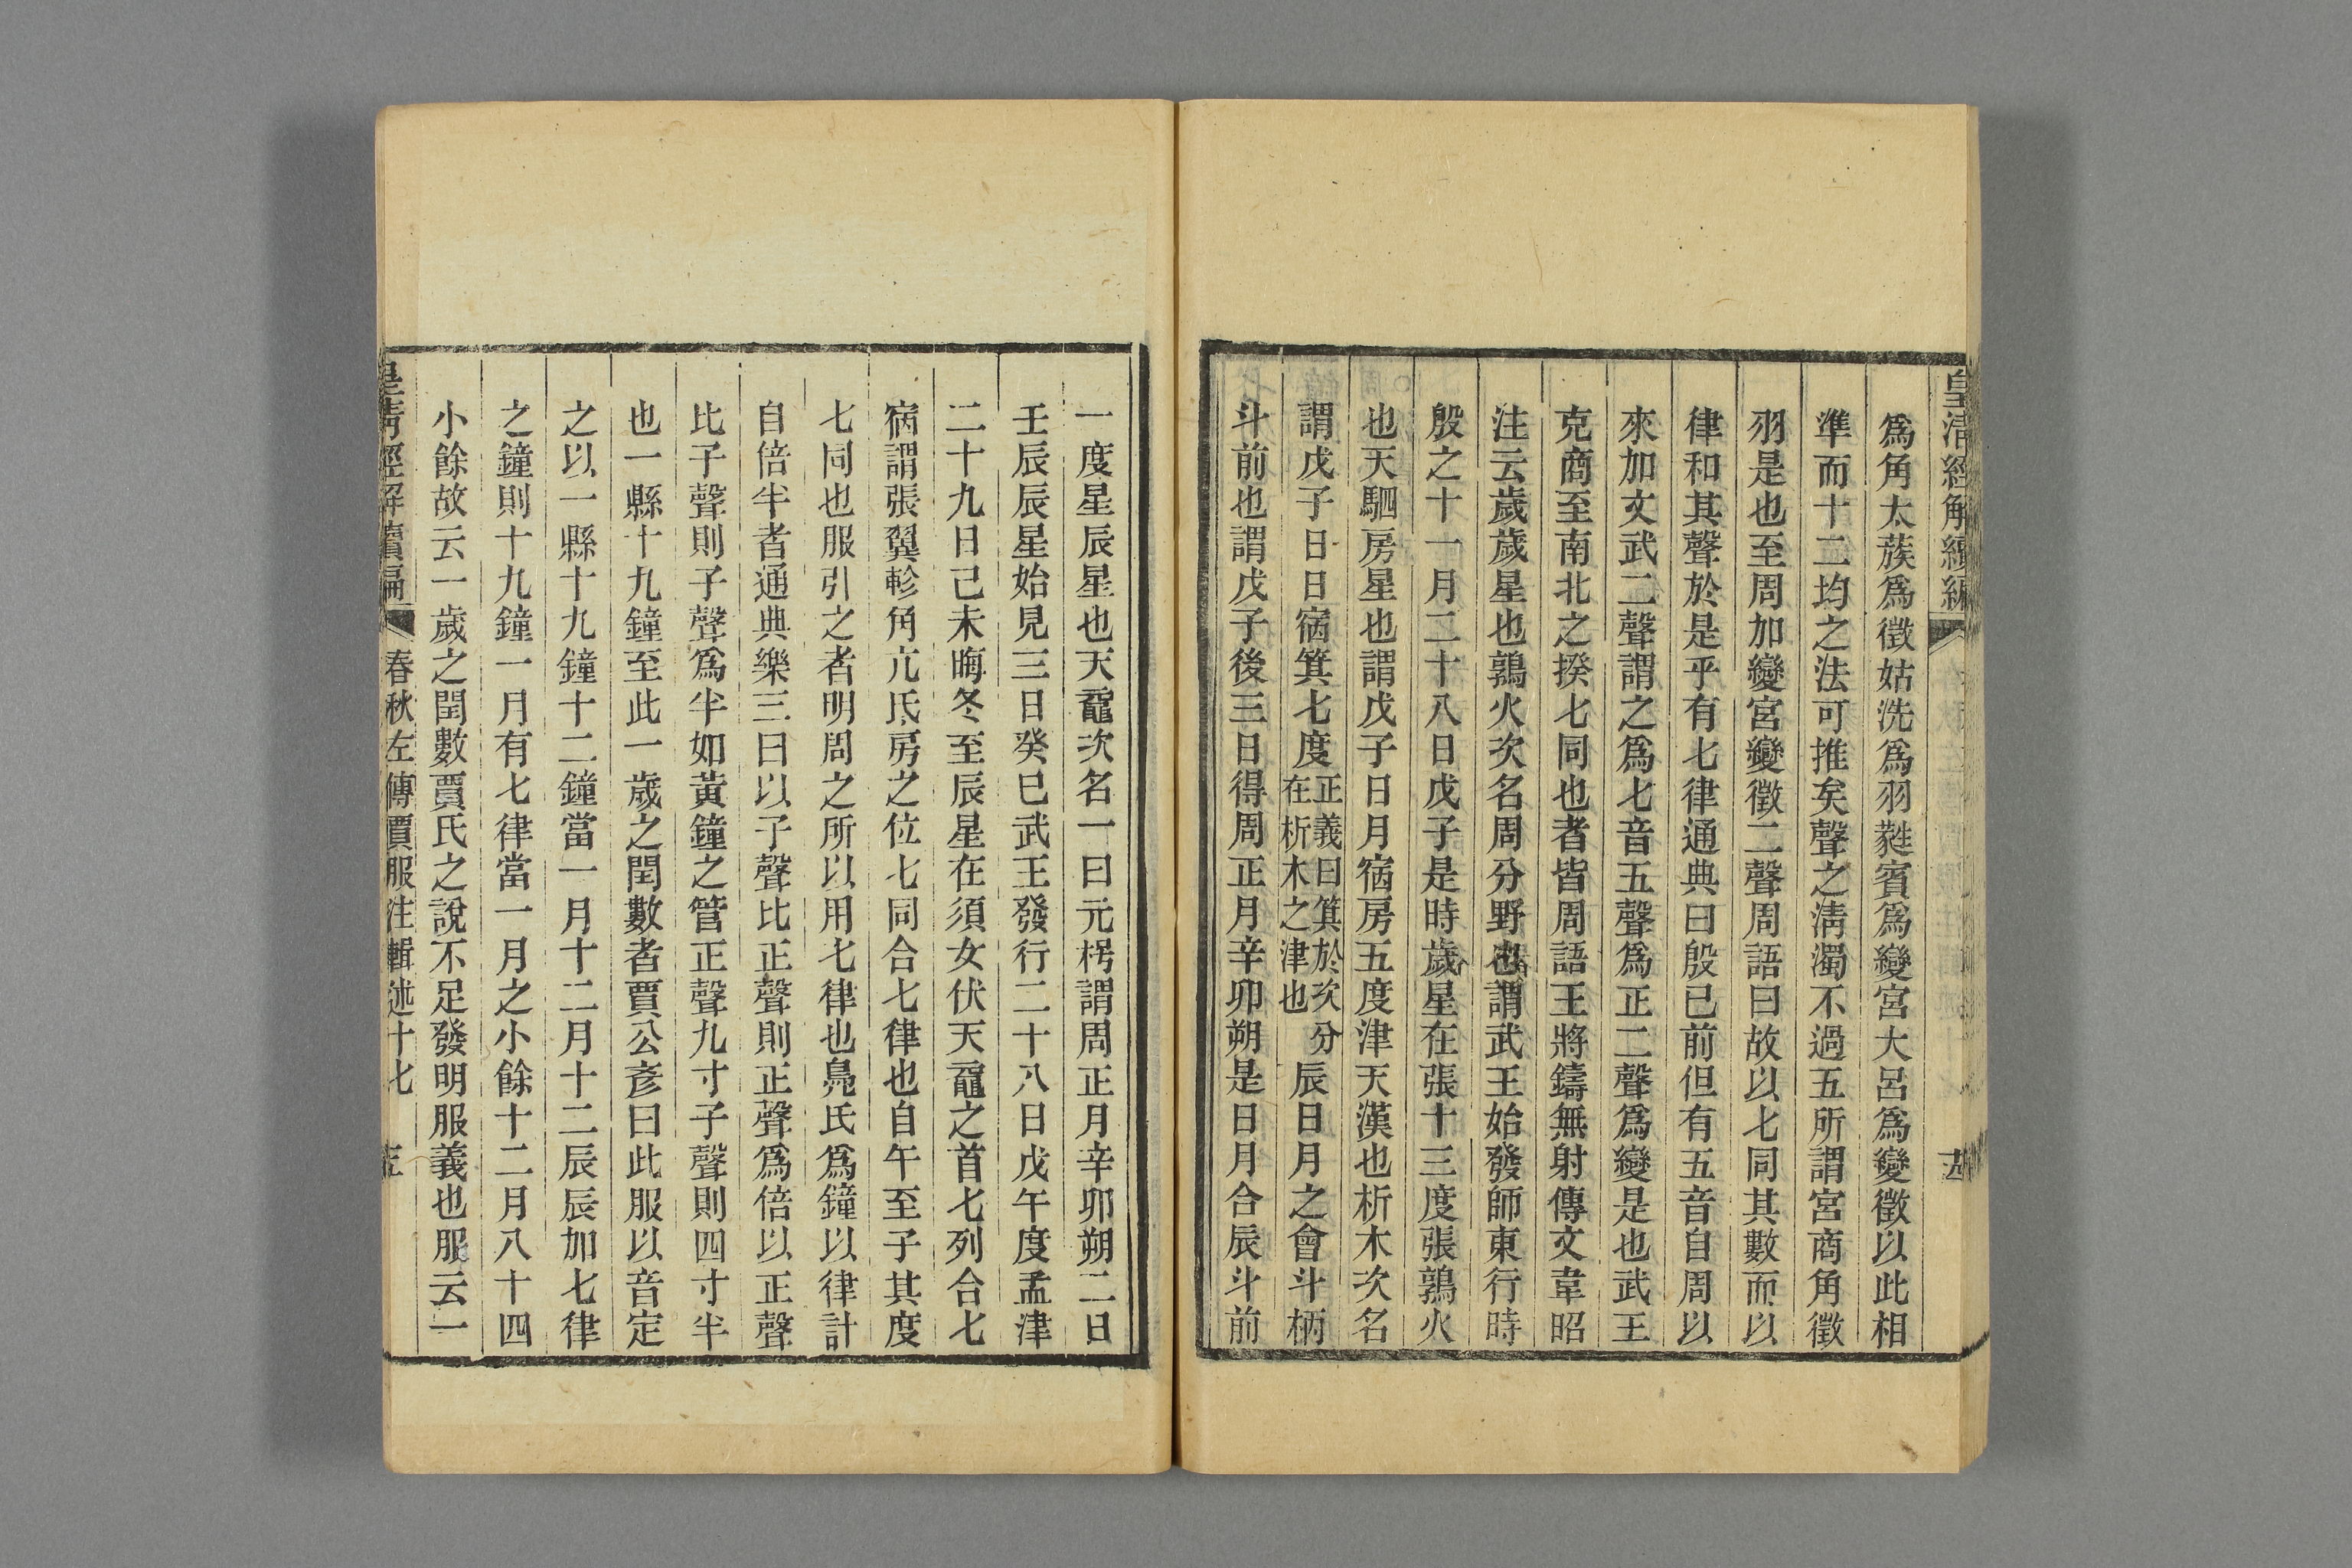 皇清經解續編
爲角太蔟爲徵姑洗爲羽蕤賓爲變宮大呂爲變徵以此相
準而十二均之法可推矣聲之淸濁不過五所謂宮商角徵
羽是也至周加變宮變徵二聲周語曰故以七同其數而以
律和其聲於是乎有七律通典曰殷已前但有五音自周以
來加文武二聲謂之爲七音五聲爲正二聲爲變是也武王
克商至南北之揆七同也者皆周語王將鑄無射傳文韋昭
注云歲歲星也鶉火次名周分野也謂武王始發師東行時
殷之十一月二十八日戊子是時歲星在張十三度張鶉火
也天駟房星也謂戊子日月宿房五度津天漢也析木次名
謂戊子日日宿箕七度正義曰箕於次分在析木之津也辰日月之會斗柄
斗前也謂戊子後三日得周正月辛卯朔是日月合辰斗前
一度星辰星也天黿次名一曰元枵謂周正月辛卯朔二日
壬辰辰星始見三日癸巳武王發行二十八日戊午度孟津
二十九日己未晦冬至辰星在須女伏天黿之首七列合七
宿謂張翼軫角亢氐房之位七同合七律也自午至子其度
七同也服引之者明周之所以用七律也鳧氏爲鐘以律計
自倍半者通典樂三曰以子聲比正聲則正聲爲倍以正聲
比子聲則子聲爲半如黃鐘之管正聲九寸子聲則四寸半
也一縣十九鐘至此一歲之閏數者賈公彥曰此服以音定
之以一縣十九鐘十二鐘當一月十二月十二辰辰加七律
之鐘則十九鐘一月有七律當一月之小餘十二月八十四
小餘故云一歲之閏數賈氏之說不足發明服義也服云一
皇淸經解續編 春秋左傳賈服注輯述十七